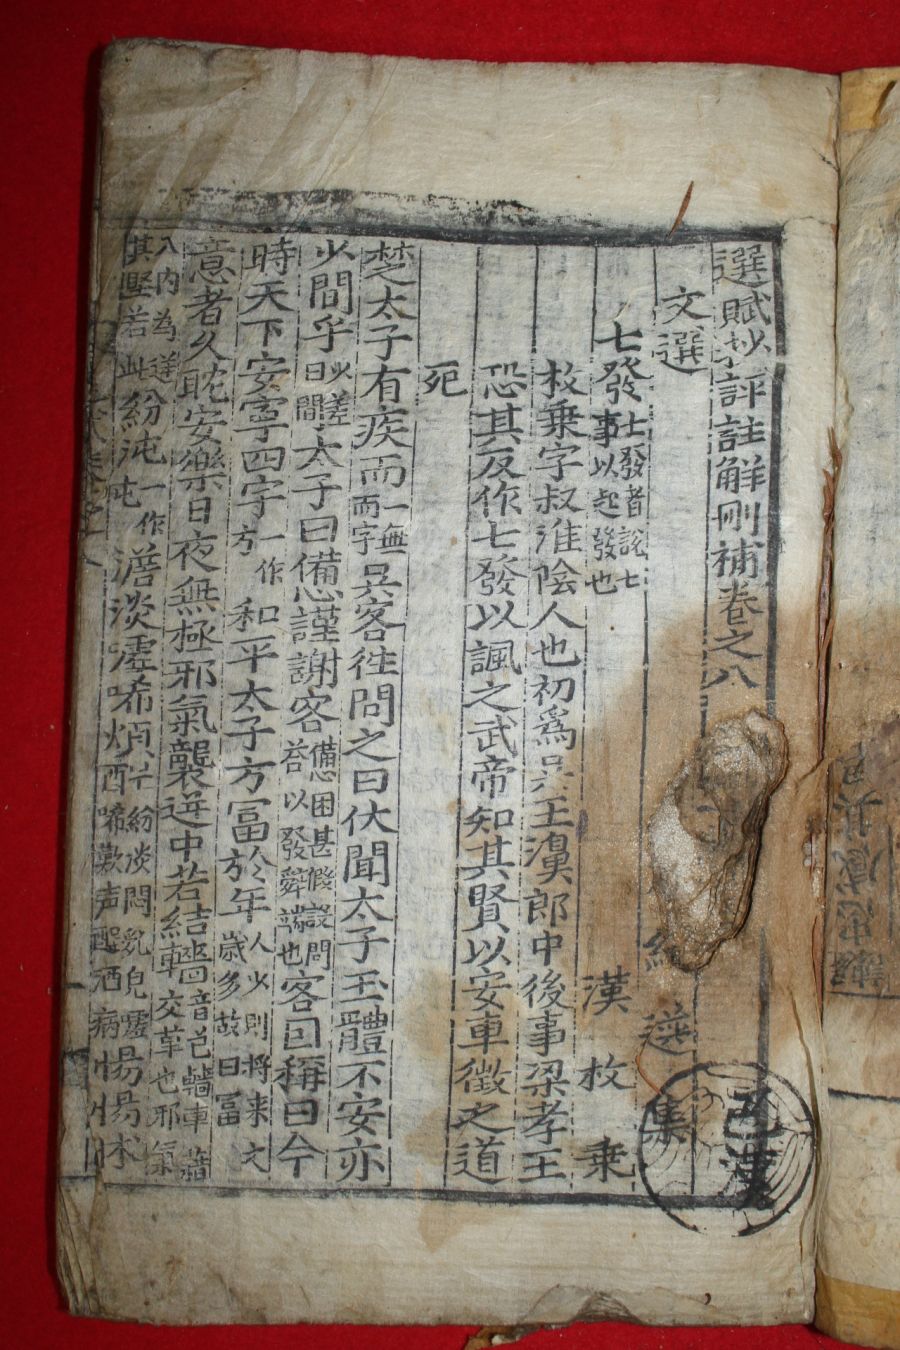 選賦抄評註解刪補卷之八
文選 選集
七發 七發者說七事以起發也 漢枚乗
枚乗字叔淮陰人也初爲吳王濞郎中後事梁孝王
恐其反作七發以諷之武帝知其賢以安車徵之道
死
楚太子有疾而一無而字吳客往問之曰伏聞太子玉體不安亦
少間乎少差曰間太子曰憊謹謝客憊困甚假設問荅以發辭端也客因稱曰今
時天下安寧四字一作方和平太子方冨於年人少則將来文歲多故曰冨
意者久耽安樂日夜無極邪氣襲逆中若結轖音色轖車藉交革也邪氣
入内為逆其堅若此紛沌一作屯澹淡噓唏煩酲紛淡悶乱皃噓唏歎声酲酒病惕惕怵